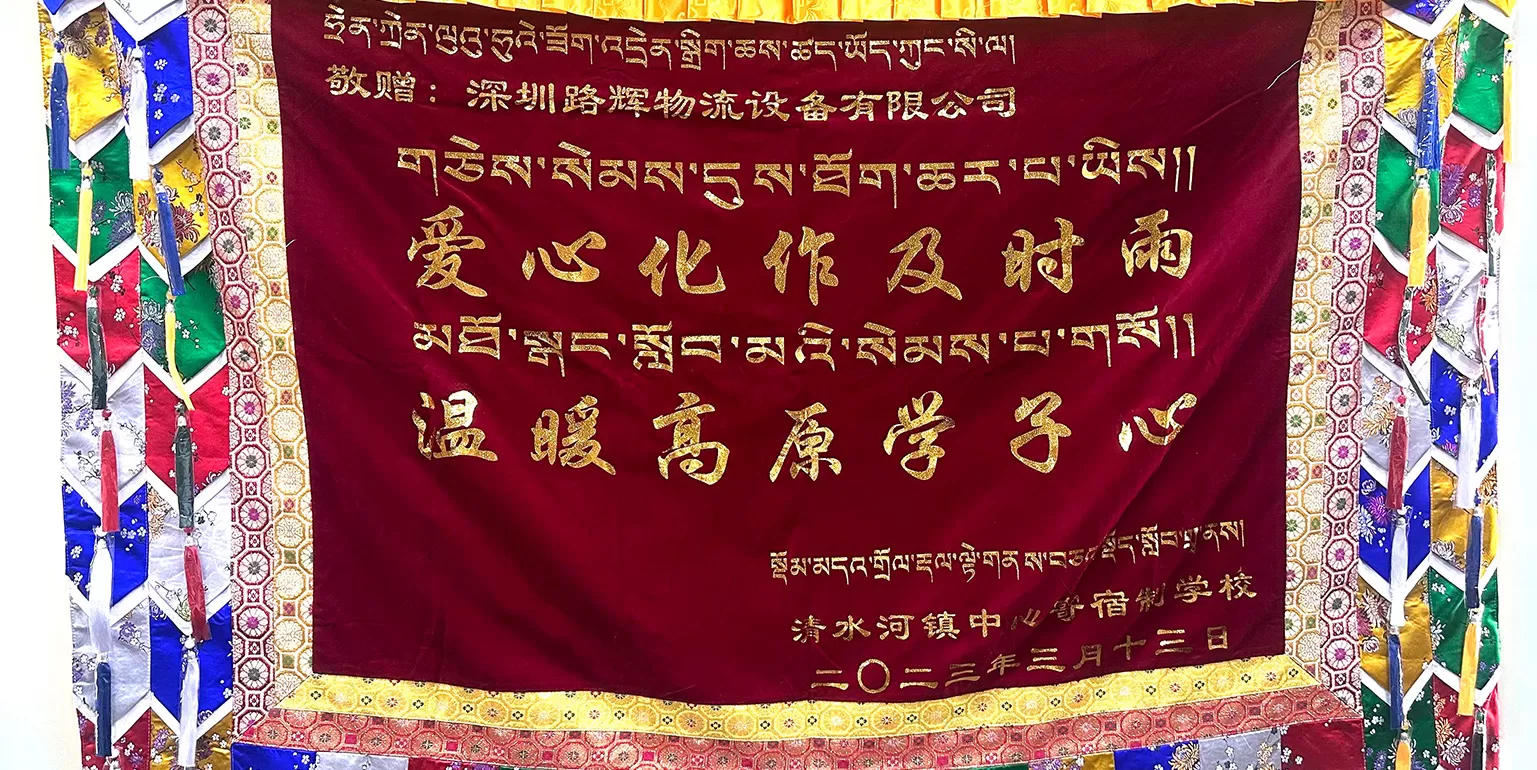 ཧྲེན་ཀྲེན་ལུའུ་ཧུའེ་ཟོག་འདྲེན་སྒྲིག་ཆས་ཚད་ཡོད་ཀུང་སི་ལ།
敬赠：深圳路辉物流设备有限公司
གཅེས་སེམས་དུས་ཐོག་ཆར་པ་ཡིས།།
爱心化作及时雨
མཐོ་སྒང་སློབ་མའི་སེམས་པ་གསོ།།
温暖高原学子心
སློབ་གྲྭ་ནས།
清水河镇中心寄宿制学校
二〇二三年三月十三日